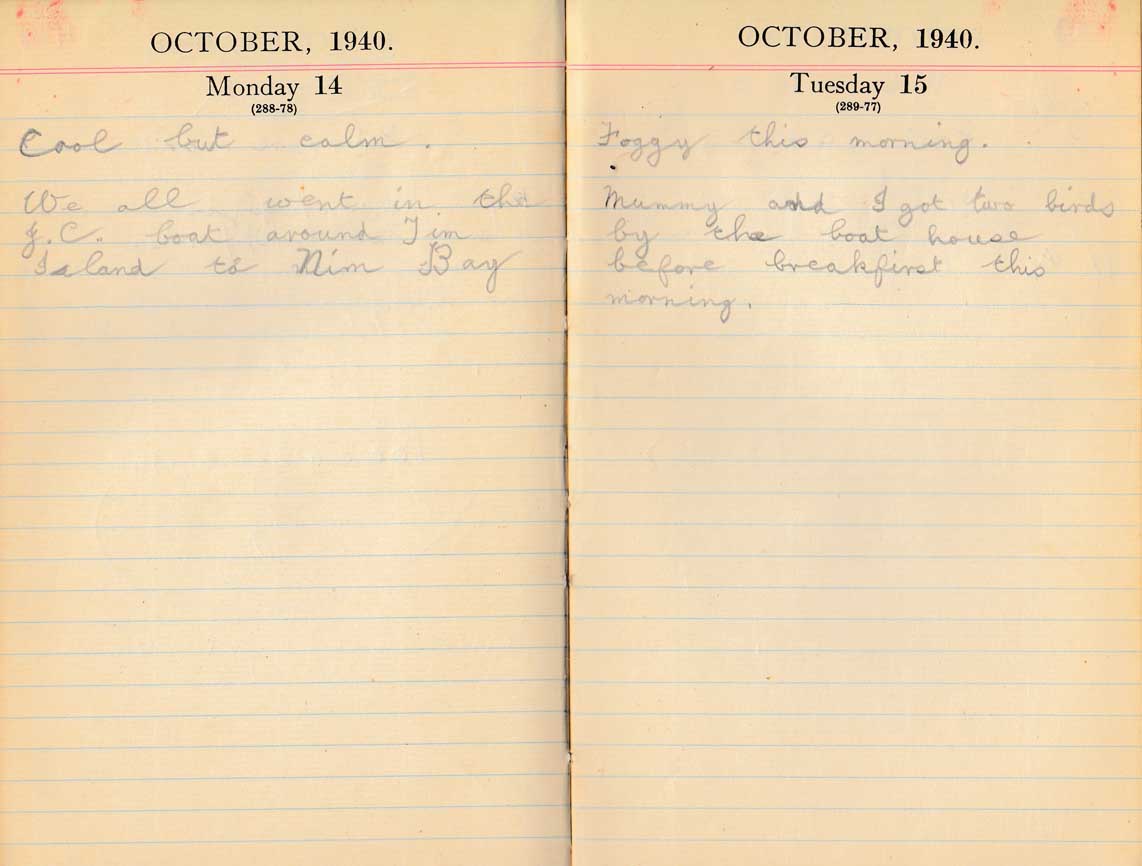 OCTOBER, 1940.
Monday 14
(288-78)
Cool but calm.
We all went in the
J.C. boat around Tim
Island to Nim Bay
OCTOBER, 1940.
Tuesday 15
(289-77)
Foggy this morning.
Mummy and I got two birds
by the boat house
before breakfirst this
morning.